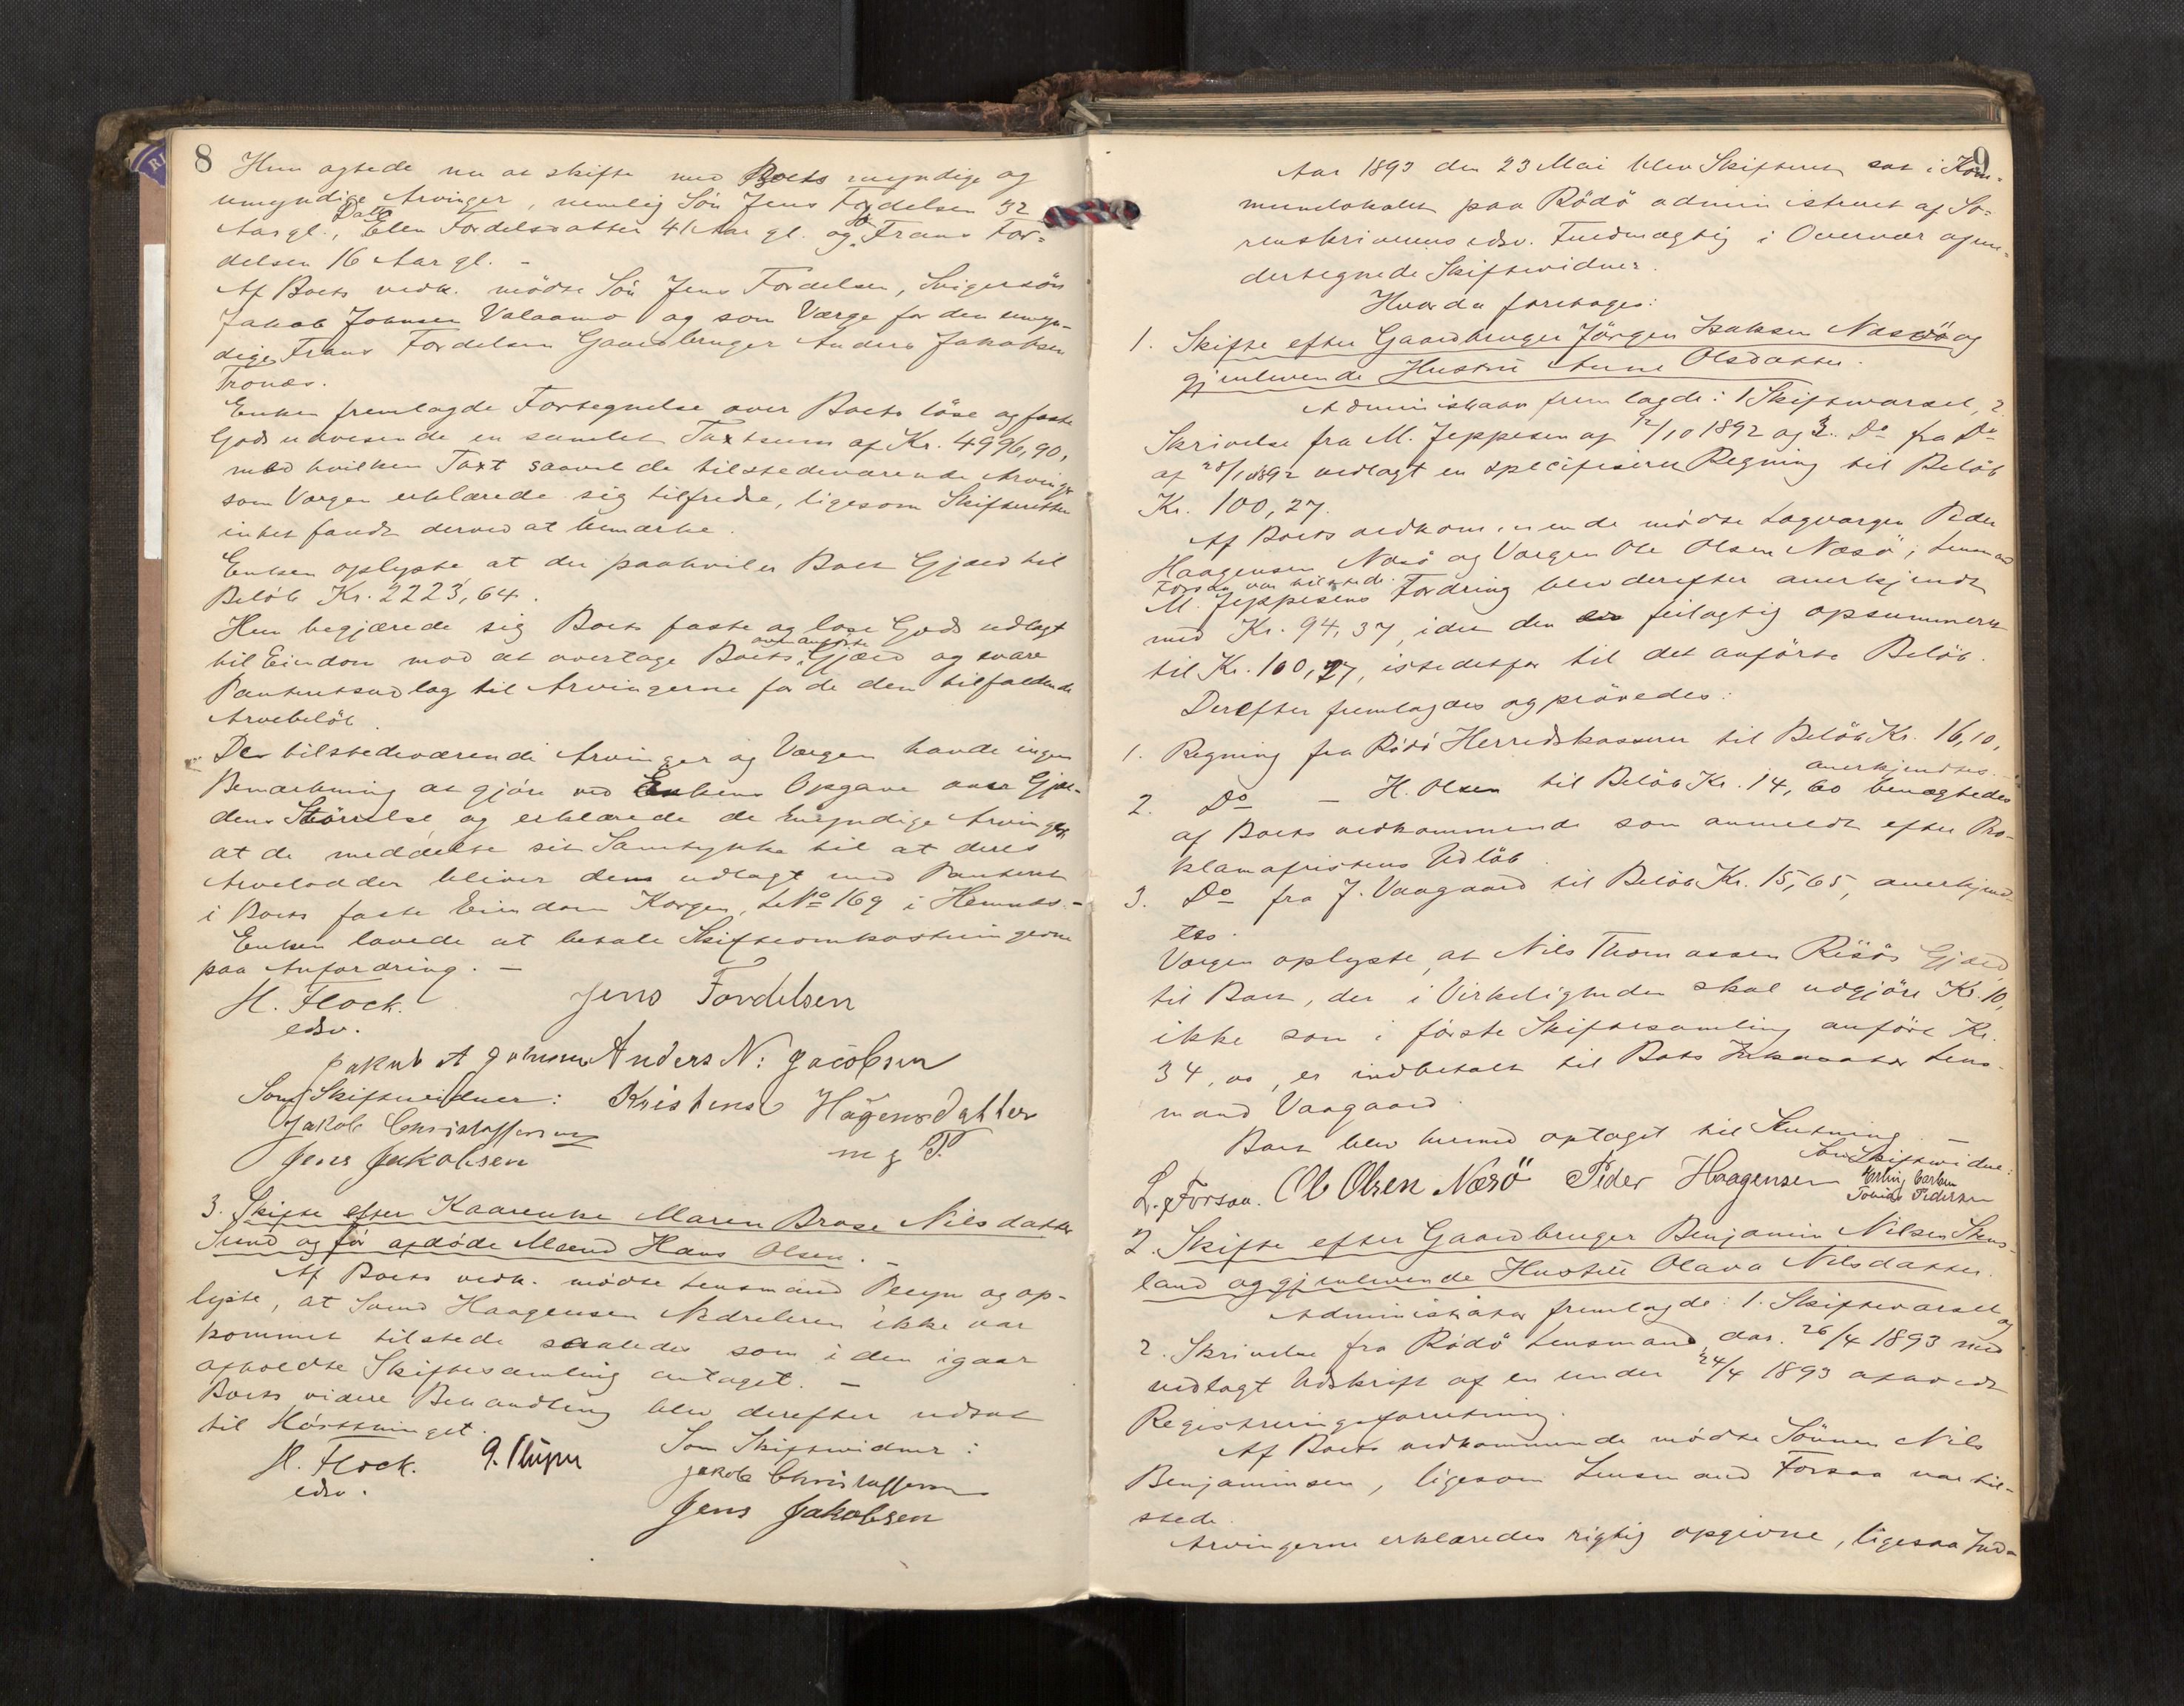 8
Hun agtede nu at skifte med Boets myndige og
umyndige Arvinger, nemlig Sön Jens Fordelsen 32
Aar gl., Datt. Ellen Fordelsdatter 41 Aar gl. og Sön Frans For-
delsen 16 Aar gl. -
Af Boets vedk. mödte Sön Jens Fordelsen, Svigersön
Jakob Johnsen Valaamo og som Værge for den umyn-
dige Frans Fordelsen Gaardbruger Anders Jakobsen
Tronæs.
Enken fremlagde Fortegnelse over Boets löse og faste
Gods udvisende en samlet Taxtsum af Kr. 4996,90,
med hvilken Taxt saavel de tilstedeværende Arvinger
som Værgen erklærede sig tilfredse, ligesom Skifteretten
intet fandt derved at bemærke.
Enken oplyste at der paahviler Boet Gjæld til
Belöb Kr. 2223,64.
Hun begjærede sig Boets faste og löse Gods udlagt
til Eiendom mod at overtage Boets ovenanförte Gjæld og svare
Panteretsudlag til Arvingerne for de dem tilfaldende
Arvebelöb.
De tilstedeværende Arvinger og Værgen havde ingen
Bemærkning at gjöre ved Enkens Opgave over Gjæl-
dens Störrelse og erklærede de myndige Arvinger,
at de meddelte sit Samtykke til at deres
Arvelodder bliver dem udlagt med Panteret
i Boets faste Eiendom Korgen, LNo 169 i Hemnes. -
Enken lovede at betale Skifteomkostningerne
paa Anfordring. -
H. Flock. Jens Fordelsen
edsv.
Jakob A Johnsen Anders N. Jacobsen
Som Skiftevidner: Kristense Hagensdatter
Jakob Christoffersen m. p. P.
Jens Jakobsen
3. Skifte efter Kaarenke Maren Brase Nilsdatter
Sund og för afdöde Mand Hans Olsen. -
Af Boets vedk. mödte Lensmand og op-
lyste, at Svend Haagensen Nedreleren ikke var
kommet tilstede saaledes som i den igaar
afholdte Skiftesamling antaget. -
Boets videre Behandling blev derefter udsat
til Hösttinget.
H. Flock. Som Skiftevidner:
edsv. Jakob Christoffersen
Jens Jakobsen
9
Aar 1893 den 23 Mai blev Skifteret sat i Kom-
munelokalet paa Rödö administreret af So-
renskriverens edsv. Fuldmægtig i Overvær af un-
dertegnede Skiftevidner.
Hvorda foretoges:
1. Skifte efter Gaardbruger Jörgen Isaksen Næsö og
gjenlevende Hustru Anne Olsdatter.
Administrator fremlagde: 1 Skiftevarsel, 2.
Skrivelse fra M. Jeppesen af 12/10 1892 og 3. Do fra Do
af 28/10 1892 vedlagt en specifiseret Regning til Belöb
Kr. 100,27.
Af Boets vedkommende mödte Lagværgen Peder
Haagensen Næsö og Værgen Ole Olsen Næsö; Lensmand
Forsaa var tilstede.
M. Jeppesens Fordring blev derefter anerkjendt
med Kr. 94,37, idet den feilagtig opsummeret
til Kr. 100,27, istedetfor til det anförte Belöb.
Derefter fremlagdes og prövedes:
1. Regning fra Rödö Herredskasserer til Belöb Kr. 16,10,
anerkjendtes.
2. Do - H. Olsen til Belöb Kr. 14,60 benægtedes
af Boets vedkommende som anmeldt efter Pro-
klamafristens Udlöb.
3. Do fra J. Vaagaard til Belöb Kr. 15,65, anerkjend-
tes.
Værgen oplyste, at Nils Thomassen Risös Gjæld
til Boet, der i Virkeligheden skal udgjöre Kr. 10,
ikke som i förste Skiftesamling anfört Kr.
34,00, er indbetalt til Boets Inkassator Lens-
mand Vaagaard.
Boet blev hermed optaget til Slutning. -
Som Skiftevidner:
L. Forsaa. Ole Olsen Næsö Peder Haagensen Carlsen
Tobias Pedersen
2. Skifte efter Gaardbruger Benjamin Nilsen Stens-
land og gjenlevende Hustru Olava Nilsdatter.
Administrator fremlagde: 1. Skiftevarsel og
2. Skrivelse fra Rödö Lensmand, dat. 26/4 1893 med
vedlagt Udskrift af en under 24/4 1893 afholdt
Registreringsforretning.
Af Boets vedkommende mödte Sönnen Nils
Benjaminsen, ligesom Lensmand Forsaa var til-
stede.
Arvingerne erklæredes rigtig opgivne, ligesaa Ind-